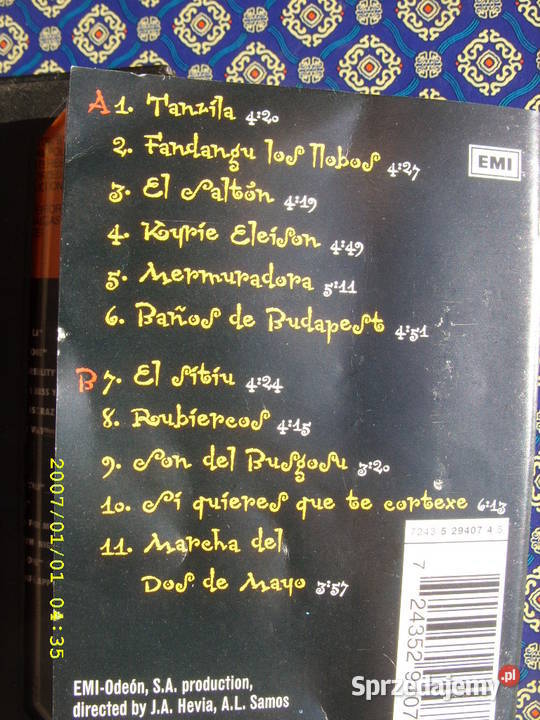 A 1. Tanzila 4:20
2. Fandangu los llobos 4:27
EMI
3. El Saltón 4:19
4. Kyrie Eleison 4:49
5. Mermuradora 5:11
6. Baños de Budapest 4:51
B 7. El Sitiu 4:24
8. Roubiercos 4:15
9. Son del Busgosu 3:20
10. Si quieres que te cortexe 6:13
11. Marcha del
Dos de Mayo 3:57
7243 5 29407 4 5
7 24352 9
EMI-Odeón, S.A. production,
directed by J.A. Hevia, A.L. Samos
2007/01/01 04:35
Sprzedajemy.pl